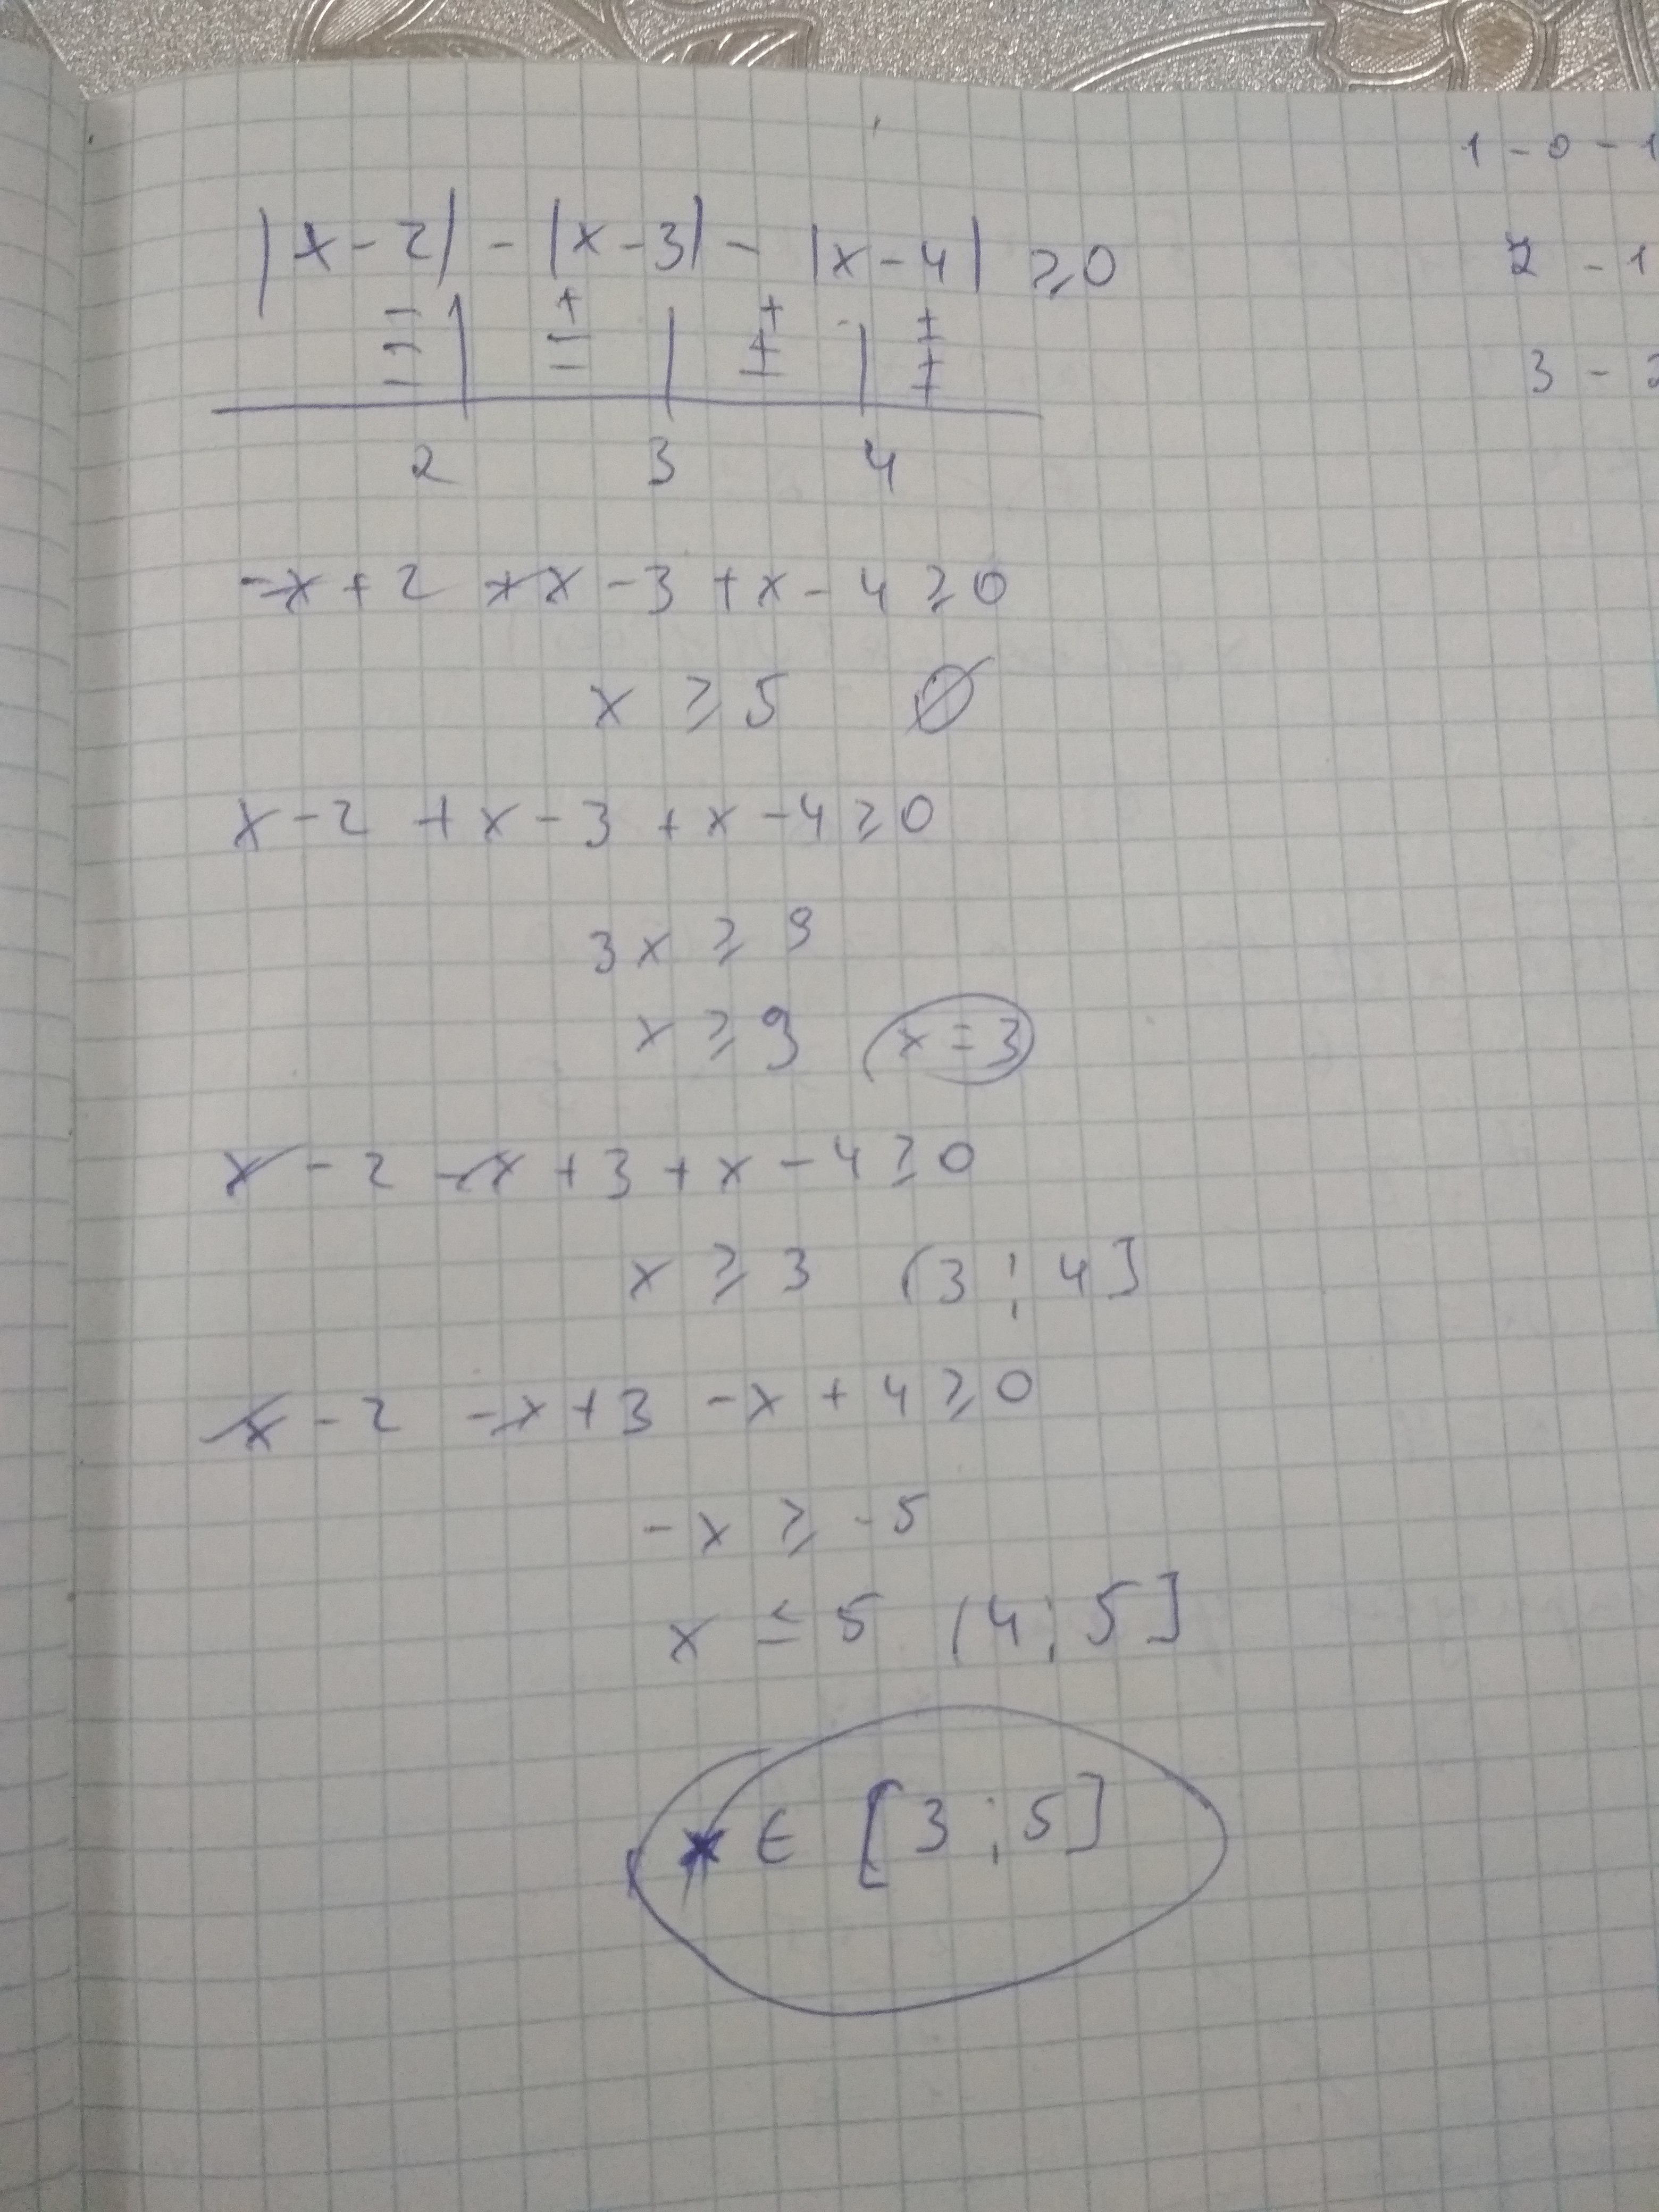 |x-2| - |x-3| - |x-4| ≥ 0
- + + +
- - + +
- - - +
2 3 4
-x+2 +x-3 +x-4 ≥ 0
x ≥ 5 ∅
x-2 +x-3 +x-4 ≥ 0
3x ≥ 9
x ≥ 3 x = 3
x-2 -x+3 +x-4 ≥ 0
x ≥ 3 (3;4]
x-2 -x+3 -x+4 ≥ 0
-x ≥ -5
x ≤ 5 (4;5]
x ∈ [3;5]
1-0-1
2-1
3-2